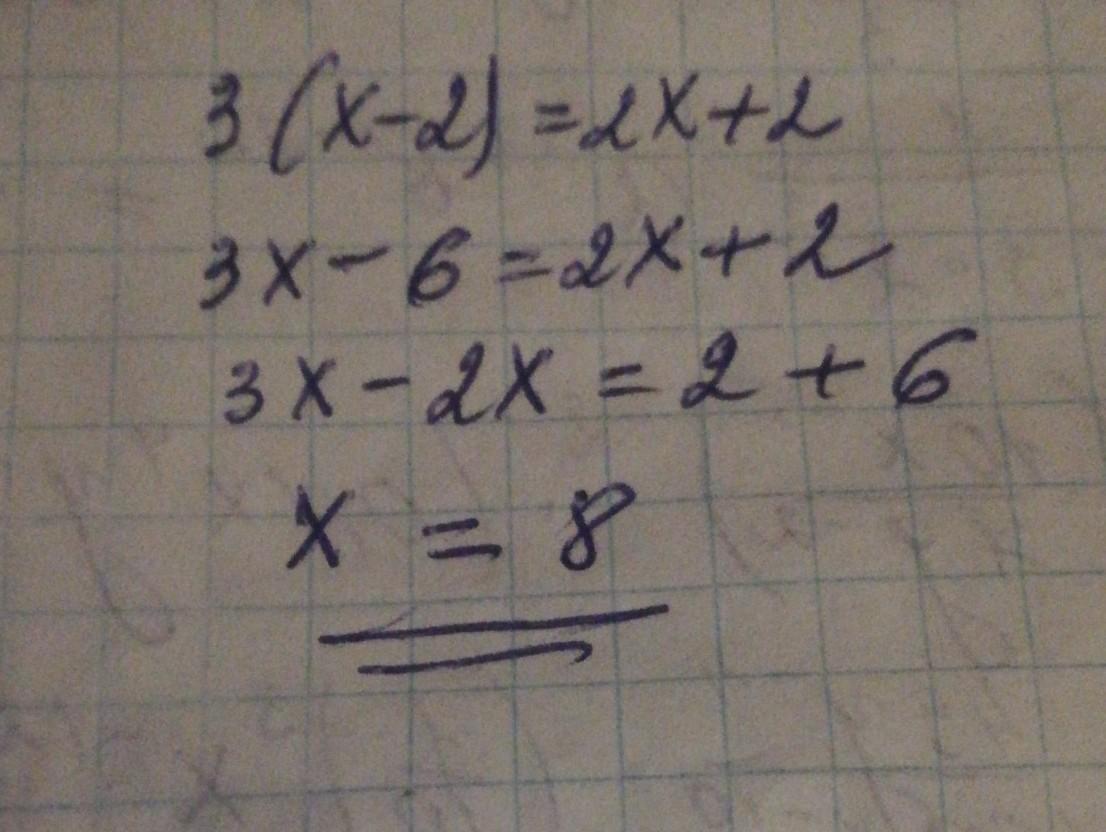 3(x-2)=2x+2
3x-6=2x+2
3x-2x=2+6
x=8